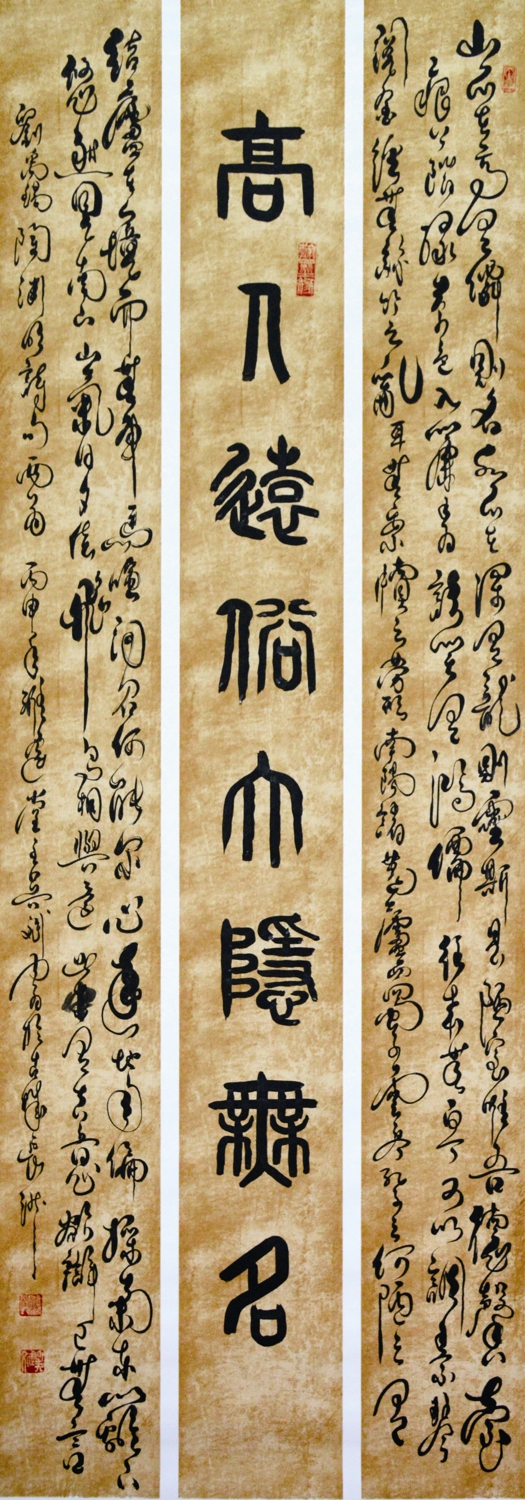 山不在高有僊則名水不在深有龍則靈斯是陋室惟吾德馨苔
痕上階綠草色入簾青談笑有鴻儒往來無白丁可以調素琴
閱金經無絲竹之亂耳無案牘之勞形南陽諸葛廬西蜀子雲亭孔子云何陋之有
高人遠俗大隱無名
結廬在人境而無車馬喧問君何能爾心遠地自偏採菊東籬下
悠然見南山山氣日夕佳飛鳥相與還此中有真意欲辯已無言
劉禹錫陶淵明詩句兩首 丙申年